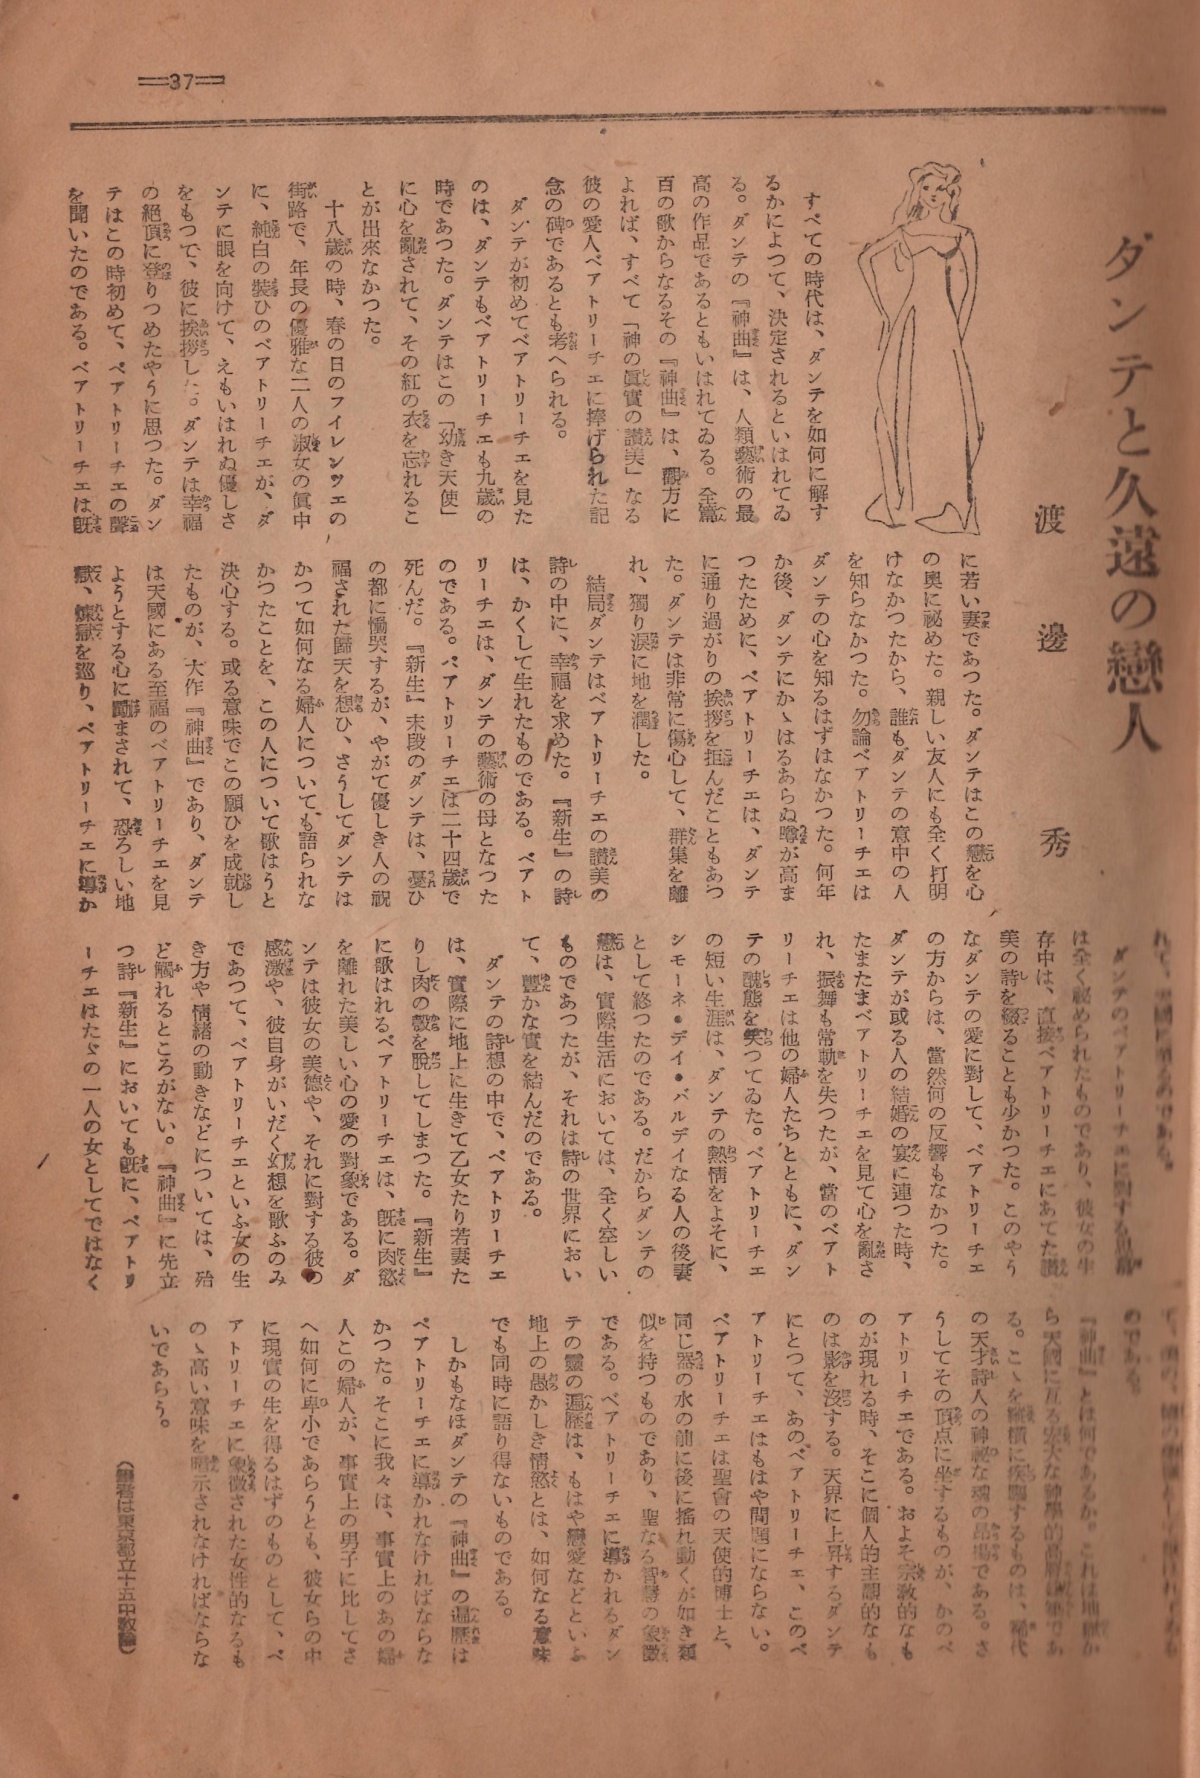 37
ダンテと久遠の戀人
渡邊秀
すべての時代は、ダンテを如何に解す
るかによつて、決定されるといはれてゐ
る。ダンテの『神曲』は、人類藝術の最
高の作品であるともいはれてゐる。全篇
百の歌からなるその『神曲』は、觀方に
よれば、すべて「神の眞實の讃美」なる
彼の愛人ベアトリーチエに捧げられた記
念の碑であるとも考へられる。
ダンテが初めてベアトリーチエを見た
のは、ダンテもベアトリーチエも九歳の
時であつた。ダンテはこの「幼き天使」
に心を亂されて、その紅の衣を忘れるこ
とが出來なかつた。
十八歳の時、春の日のフイレンツエの
街路で、年長の優雅な二人の淑女の眞中
に、純白の裝ひのベアトリーチエが、ダ
ンテに眼を向けて、えもいはれぬ優しさ
をもつて、彼に挨拶した。ダンテは幸福
の絶頂に登りつめたやうに思つた。ダン
テはこの時初めて、ベアトリーチエの聲
を聞いたのである。ベアトリーチエは既
に若い妻であつた。ダンテはこの戀を心
の奧に祕めた。親しい友人にも全く打明
けなかつたから、誰もダンテの意中の人
を知らなかつた。勿論ベアトリーチエは
ダンテの心を知るはずはなかつた。何年
か後、ダンテにかゝはるあらぬ噂が高ま
つたために、ベアトリーチエは、ダンテ
に通り過がりの挨拶を拒んだこともあつ
た。ダンテは非常に傷心して、群集を離
れ、獨り淚に地を潤した。
結局ダンテはベアトリーチエの讃美の
詩の中に、幸福を求めた。『新生』の詩
は、かくして生れたものである。ベアト
リーチエは、ダンテの藝術の母となつた
のである。ベアトリーチエは二十四歳で
死んだ。『新生』末段のダンテは、憂ひ
の都に慟哭するが、やがて優しき人の祝
福された歸天を想ひ、さうしてダンテは
かつて如何なる婦人についても語られな
かつたことを、この人について歌はうと
決心する。或る意味でこの願ひを成就し
たものが、大作『神曲』であり、ダンテ
は天國にある至福のベアトリーチエを見
ようとする心に勵まされて、恐ろしい地
獄、煉獄を巡り、ベアトリーチエに導か
ダンテのベアトリーチエに對する思慕
は全く祕められたものであり、彼女の生
存中は、直接ベアトリーチエにあてた讃
美の詩を綴ることも少かつた。このやう
なダンテの愛に對して、ベアトリーチエ
の方からは、當然何の反響もなかつた。
ダンテが或る人の結婚の宴に連つた時、
たまたまベアトリーチエを見て心を亂さ
れ、振舞も常動を失つたが、當のベアト
リーチエは他の婦人たちとともに、ダン
テの醜態を笑つてゐた。ベアトリーチエ
の短い生涯は、ダンテの熱情をよそに、
シモーネ・デイ・バルデイなる人の後妻
として終つたのである。だからダンテの
戀は、實際生活においては、全く空しい
ものであつたが、それは詩の世界におい
て、豐かな實を結んだのである。
ダンテの詩想の中で、ベアトリーチエ
は、實際に地上に生きて乙女たり若妻た
りし肉の殼を脫してしまつた。『新生』
に歌はれるベアトリーチエは、既に肉慾
を離れた美しい心の愛の對象である。ダ
ンテは彼女の美德や、それに對する彼の
感激や、彼自身がいだく幻想を歌ふのみ
であつて、ベアトリーチエといふ女の生
き方や情緒の動きなどについては、殆
ど觸れるところがない。『神曲』に先立
つ詩『新生』においても既に、ベアトリ
ーチエはたゞの一人の女としてではなく
のである。
『神曲』とは何であるか。これは地獄か
ら天國に亙る宏大な神學的
る。こゝを縱橫に疾驅するものは、稀代
の天才詩人の神祕な魂の昂揚である。さ
うしてその頂点に坐するものが、かのベ
アトリーチエである。およそ宗敎的なも
のが現れる時、そこに個人的主觀的なも
のは影を沒する。天界に上昇するダンテ
にとつて、あのベアトリーチエ、このベ
アトリーチエはもはや問題にならない。
ベアトリーチエは聖會の天使的博士と、
同じ器の水の前に後に搖れ動くが如き類
似を持つものであり、聖なる智慧の象徵
である。ベアトリーチエに導かれるダン
テの靈の遍歷は、もはや戀愛などといふ
地上の愚かしき情慾とは、如何なる意味
でも同時に語り得ないものである。
しかもなほダンテの『神曲』の遍歷は
ベアトリーチエに導かれなければならな
かつた。そこに我々は、事實上のあの婦
人この婦人が、事實上の男子に比してさ
へ如何に卑小であらうとも、彼女らの中
に現實の生を得るはずのものとして、ベ
アトリーチエに象徵された女性的なるも
のゝ高い意味を暗示されなければならな
いであらう。
(筆者は東京都立十五中敎諭)